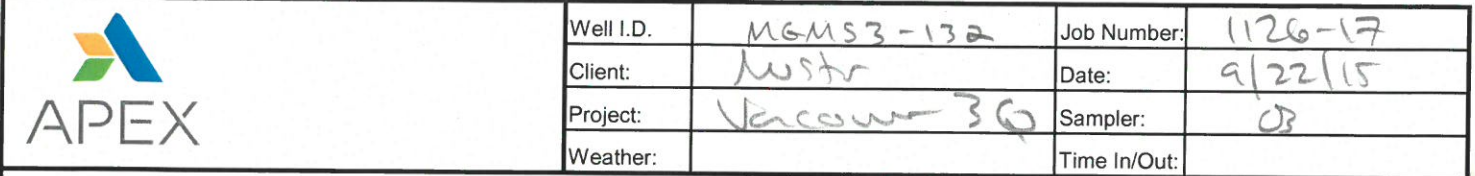 Well I.D. MGMS3-132 Job Number: 1126-17
Client: Nustr Date: 9/22/15
APEX Project: Vancouver 3Q Sampler: CB
Weather: Time In/Out: